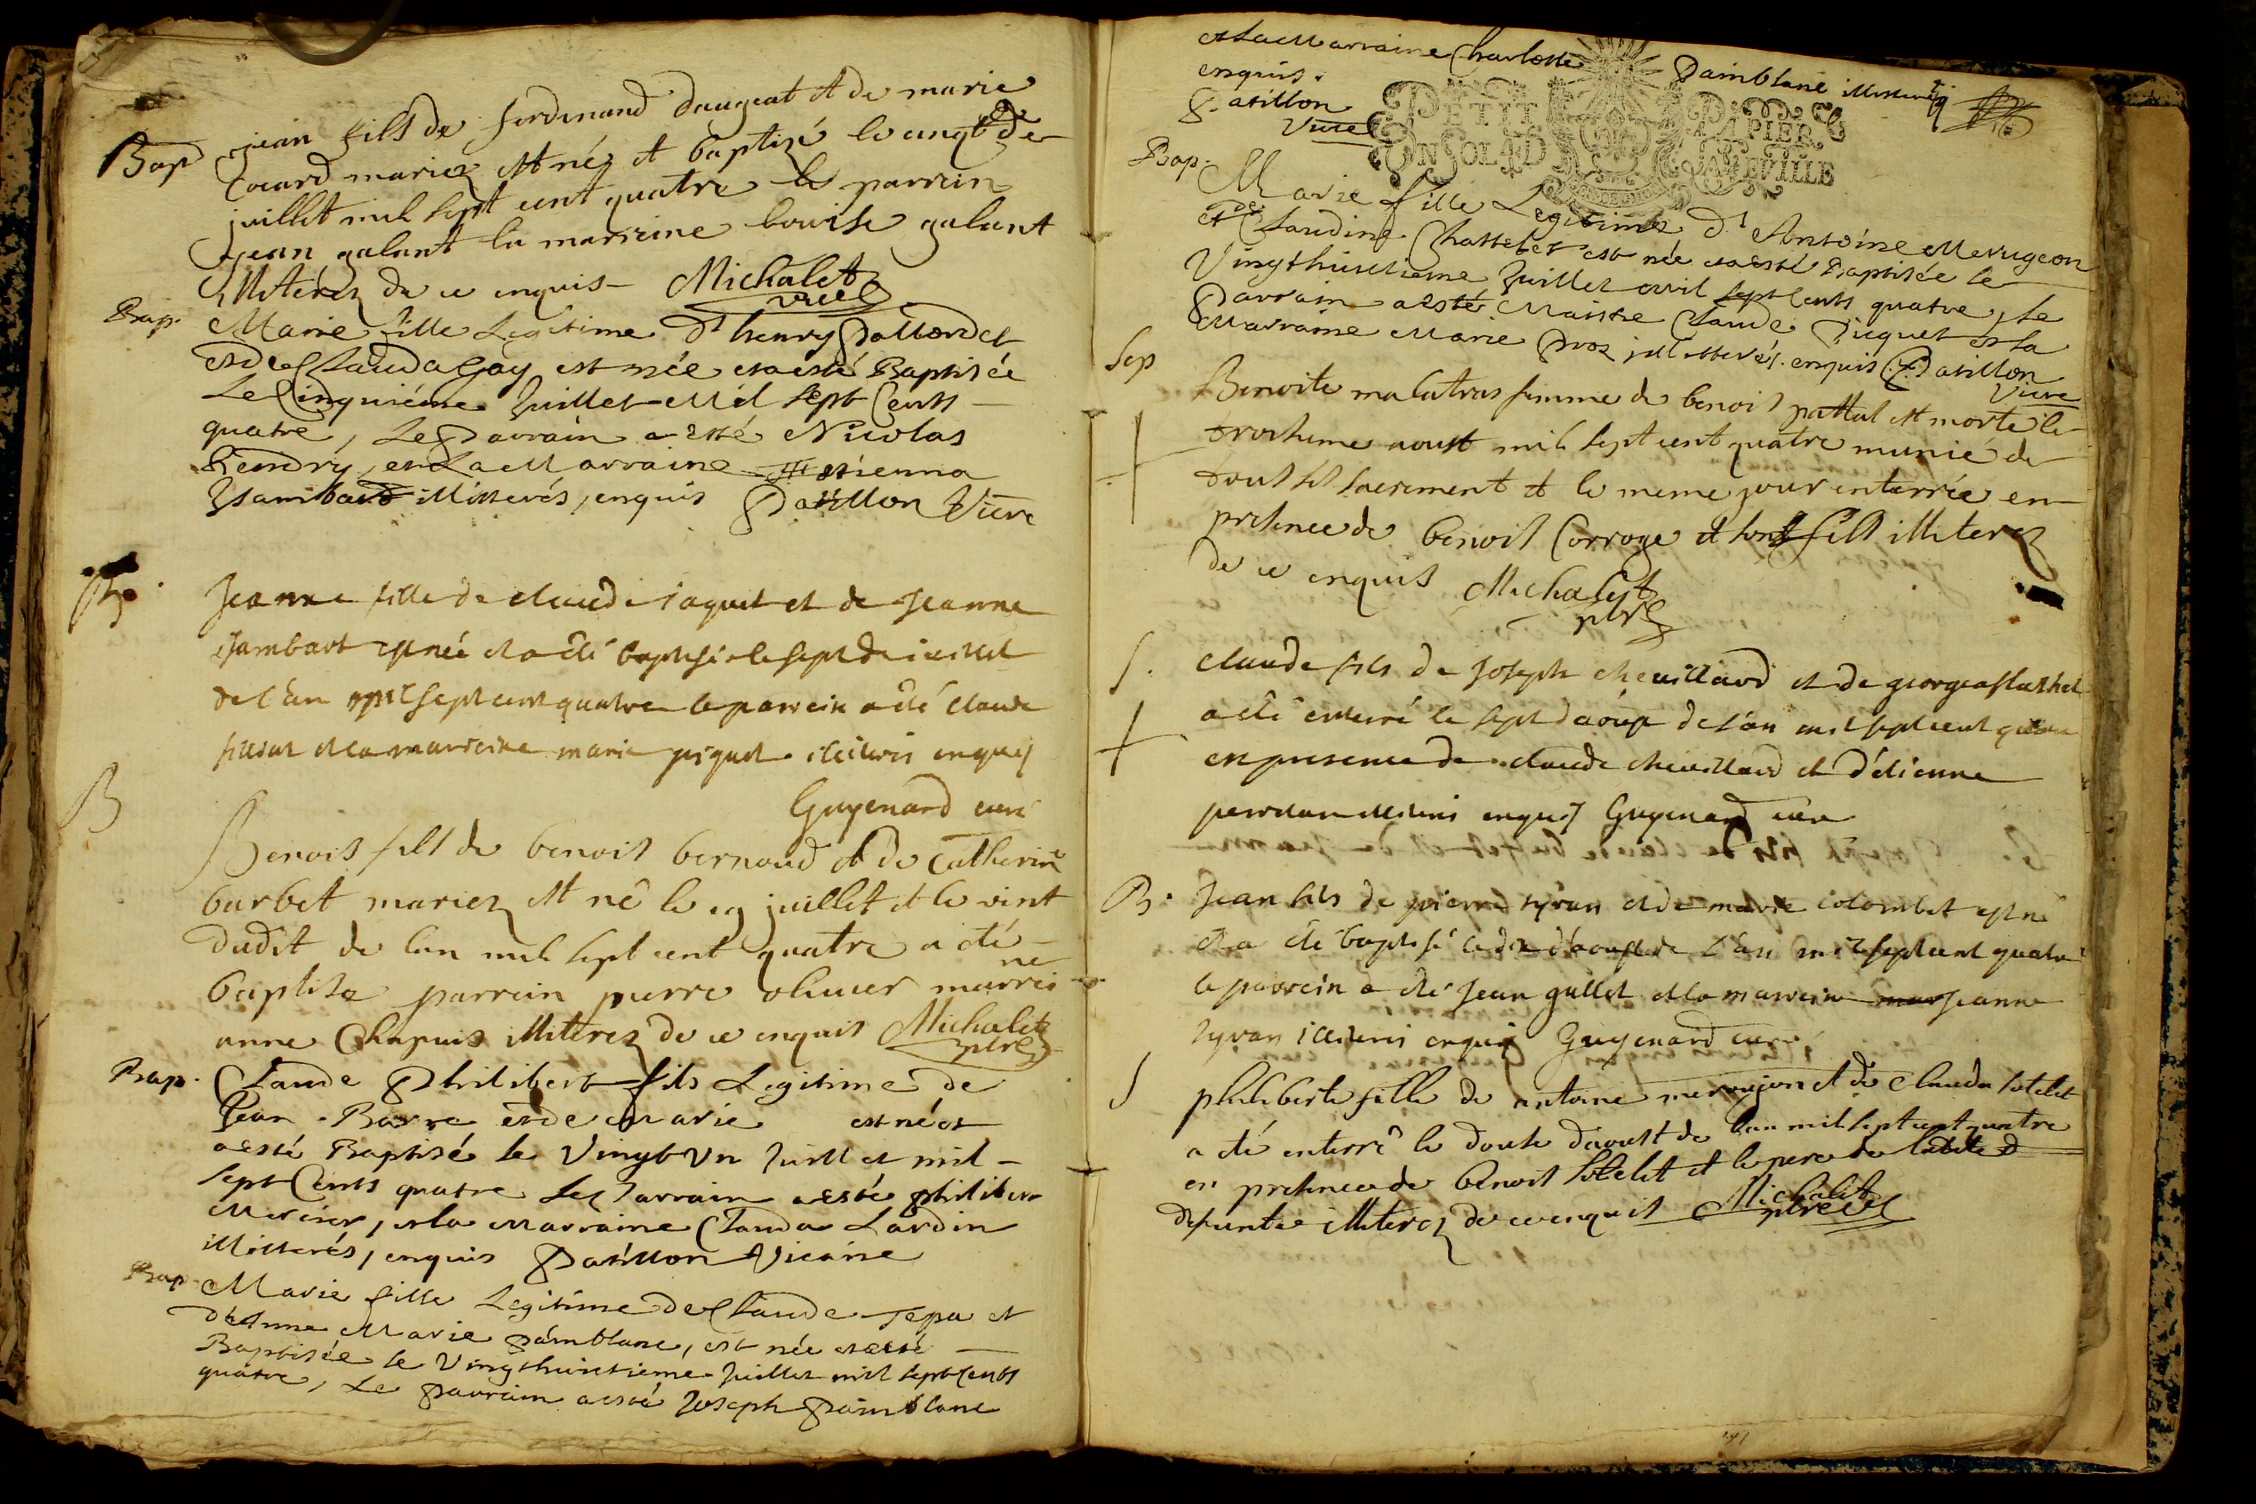 Bap jean fils de ferdinand daugeat et de marie
Cocard mariez est néz et baptizé le cinqt de
juillet mil sept cent quatre le parrein
jean galant la marreine louise galant
illiterez de ce enquis Michalet
vicre
Bap. Marie fille Legitime dt henry
et de Clauda Gay est née et a esté Baptisée
Le Cinquiéme Juillet Mil Sept Cents
quatre, Le Parrain a esté Nicolas
et La Marraine Estienna
illitterés, enquis Patillon Vicre
Jeanne fille de claude iaquet et de Jeanne
Jambart est née et a été baptisée le sept de iuillet
de l'an mil sept cent quatre le parrein a été claude
et la marreine marie piquet illiteris enquis
Guyenard curé
B
Benois fils de benoit bernoud et de Catherine
barbet mariez est né le 19 juillet et le vint
dudit de lan mil sept cent quatre a été
baptise parrein pierre olivier marrei
ne
anne Chapuis illiterez de ce enquis Michalet
ptre
Bap. Claude Philibert fils Legitime de
Jean Barre et de Marie est né et
a esté Baptisé le Vingt Vn Juillet mil
sept Cents quatre Le Parrain a esté philibert
Mercier, et la Marraine Clauda Lardin
illitterés, enquis Patillon Vicaire
Bap. Marie fille Legitime de Claude Tepa et
d'Anne Marie Painblanc, est née et a esté
Baptisée le Vingt huictieme Juillet mil sept Cents
quatre, Le Parrain a esté Joseph Painblanc
et La Marraine Charlotte Painblanc
enquis.
P. Patillon
Vicre
PETIT PAPIER
UN SOL 4 D LA FEVILLE
Bap. Marie fille Legitime dt Antoine Merugeon
et de Claudine Chattelet est née et a esté Baptisée le
Vingt huictieme Juillet mil sept Cents quatre, Le
Parrain a esté Maistre Claude Picquet et la
Marraine Marie Proz illitterés. enquis P. Patillon
Vicre
Sep Benoite malatras femme de benoit pattal est morte le
troisieme aoust mil sept cent quatre munié de
tout ses sacrement et le meme jour enterrée en
presence de benoit Corroge et sont fils illiterez
de ce enquis Michalet
ptre
S. claude fils de Joseph chevillard et de
a été enterré le sept d'aoust de l'an mil sept cent quatre
en presence de claude chevillard et d'étienne
illiteris enquis Guyenard curé
B. Jean fils de pierre syvan et de marie colombet est né
et a été baptisé le dix d'aoust de l'an mil sept cent quatre
le parrein a été Jean gullet et la marreine Jeanne
syvan illiteris enquis Guyenard curé
S philiberte fille de antoine merugeon et de clauda sotelet
a été enterré le douse daoust de lan mil sept cent quatre
en presence de benoit sotelet et le pere de ladite d
defunte illiterez de ce enquis Michalet
ptre